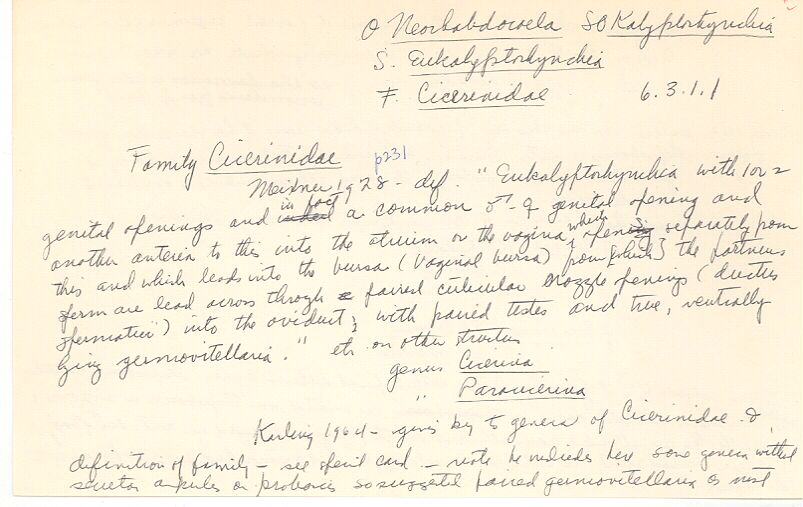 O Neorhabdocoela SO Kalyptorhynchia
S. Eukalyptorhynchia
F. Cicerinidae 6.3.1.1
Family Cicerinidae p231
Meixner 1928 - def. "Eukalyptorhynchia with 1 or 2
genital openings and in fact a common ♂-♀ genital opening and
another anterior to this into the atrium or the vagina which opens separately from
this and which leads into the bursa (vaginal bursa) from [which] the partners
sperm are lead across through paired cuticular nozzle openings (ductus
spermatici") into the oviduct; with paired testes and true, ventrally
lying germovitellaria." etc. on other structures
genus Cicerina
" Paracicerina
Karling 1964 - gives key to genera of Cicerinidae &
definition of family - see special card - note he includes here some genera without
on proboscis so suggested paired germovitellaria as most